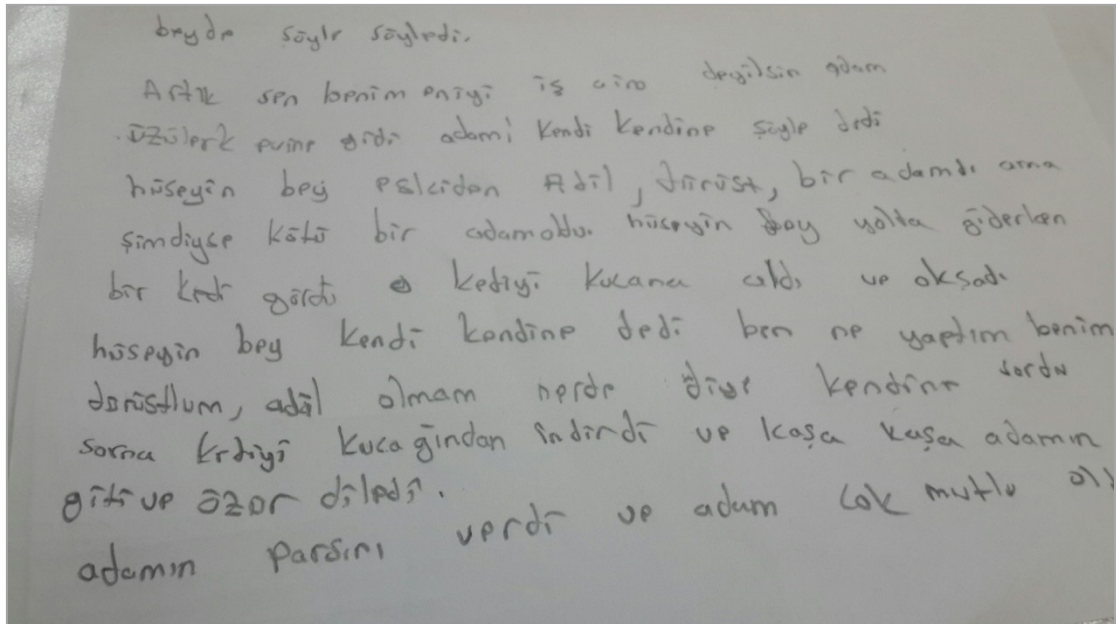 beyde şöyle söyledi.
Artık sen benim eniyi iş deyilsin adam
üzülerk evine gidi adam kendi kendine şöyle dedi
hüseyin bey eskiden Adil, dürüst, bir adamdı ama
şimdiyse kötü bir adamoldu. hüseyin bey yolda giderken
bir kedi gördü kediyi kucana aldı ve okşadı
hüseyin bey kendi kendine dedi ben ne yaptım benim
dürüstlum, adil olmam nerde diye kendine sordu
sorna kediyi kucağından indirdi ve koşa koşa adamın
giti ve özor diledi.
adamın parsını verdi ve adam çok mutlu